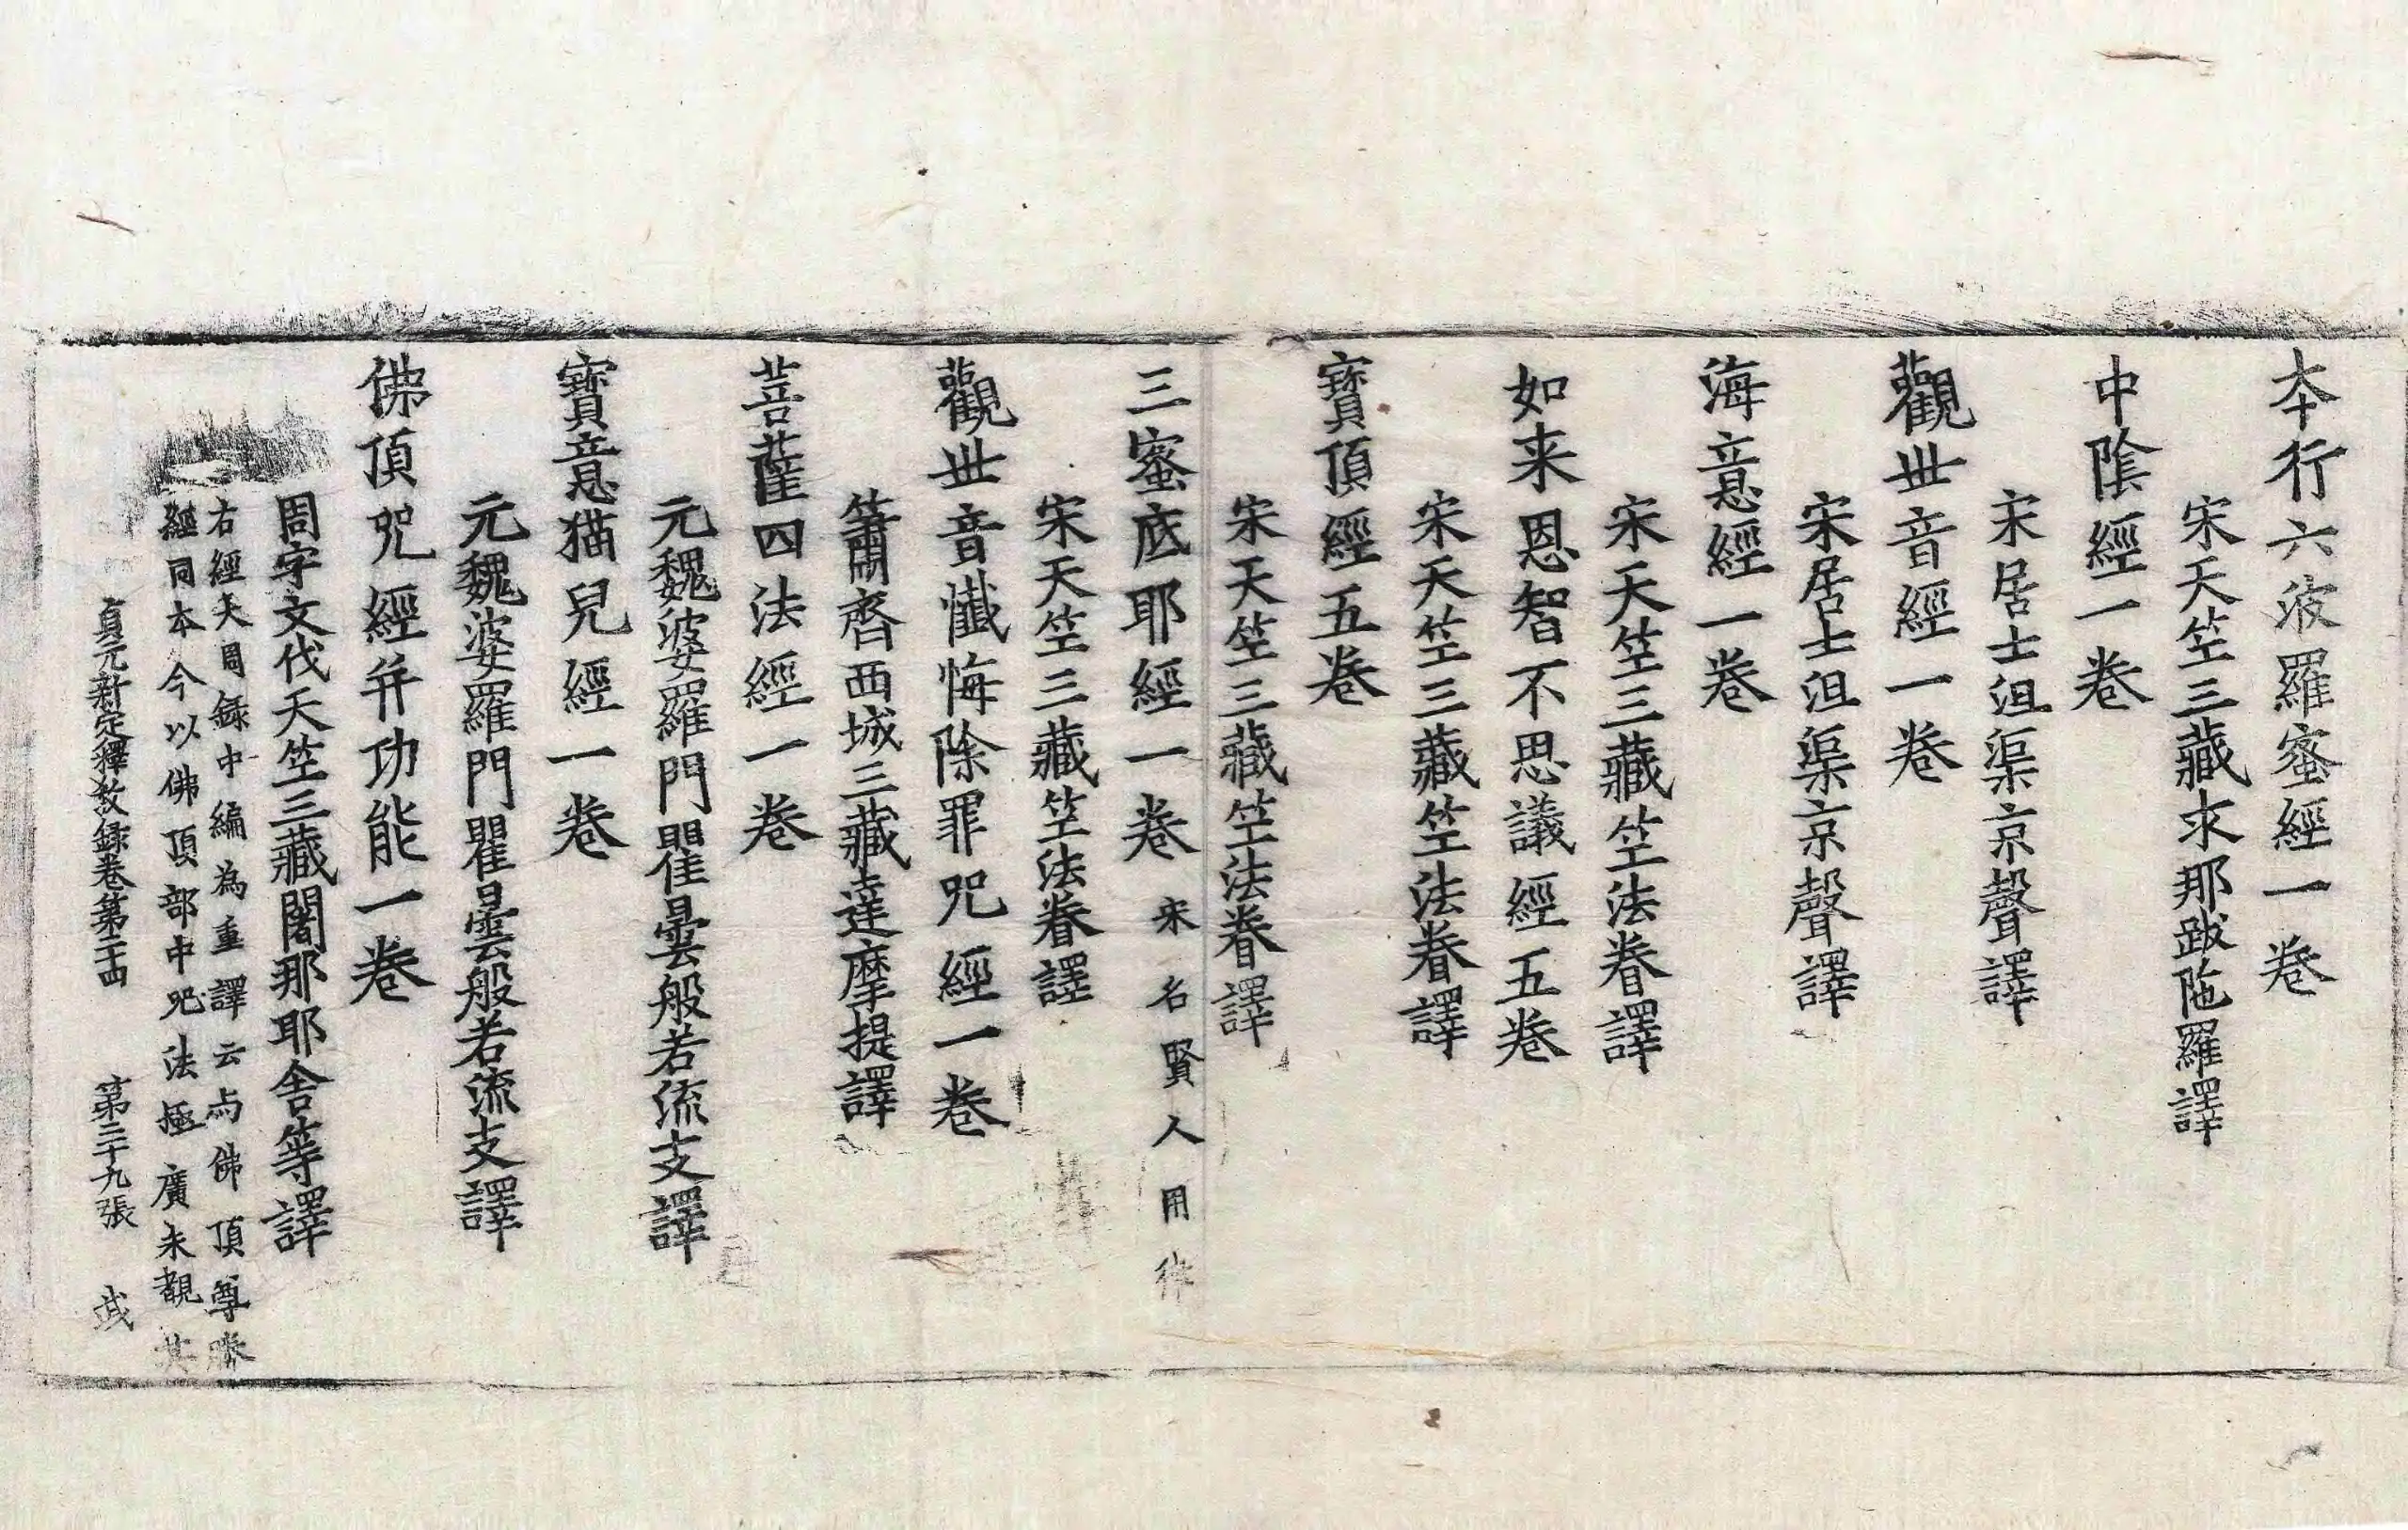 本行六波羅蜜經一卷
宋天竺三藏求那跋陁羅譯
中陰經一卷
宋居士沮渠京聲譯
觀世音經一卷
宋居士沮渠京聲譯
海意經一卷
宋天竺三藏竺法眷譯
如来恩智不思議經五卷
宋天竺三藏竺法眷譯
寶頂經五卷
宋天竺三藏竺法眷譯
三蜜底耶經一卷 宋名賢人用
宋天竺三藏竺法眷譯
觀世音懺悔除罪呪經一卷
簫齊西域三藏達摩提譯
菩薩四法經一卷
元魏婆羅門瞿曇般若流支譯
寶意猫兒經一卷
元魏婆羅門瞿曇般若流支譯
佛頂呪經并功能一卷
周宇文代天竺三藏闍那耶舍等譯
右經大周錄中編為重譯云与佛頂尊勝
經同本今以佛頂部中呪法極廣未覩其
貞元新定釋教錄卷第二十四 第二十九張